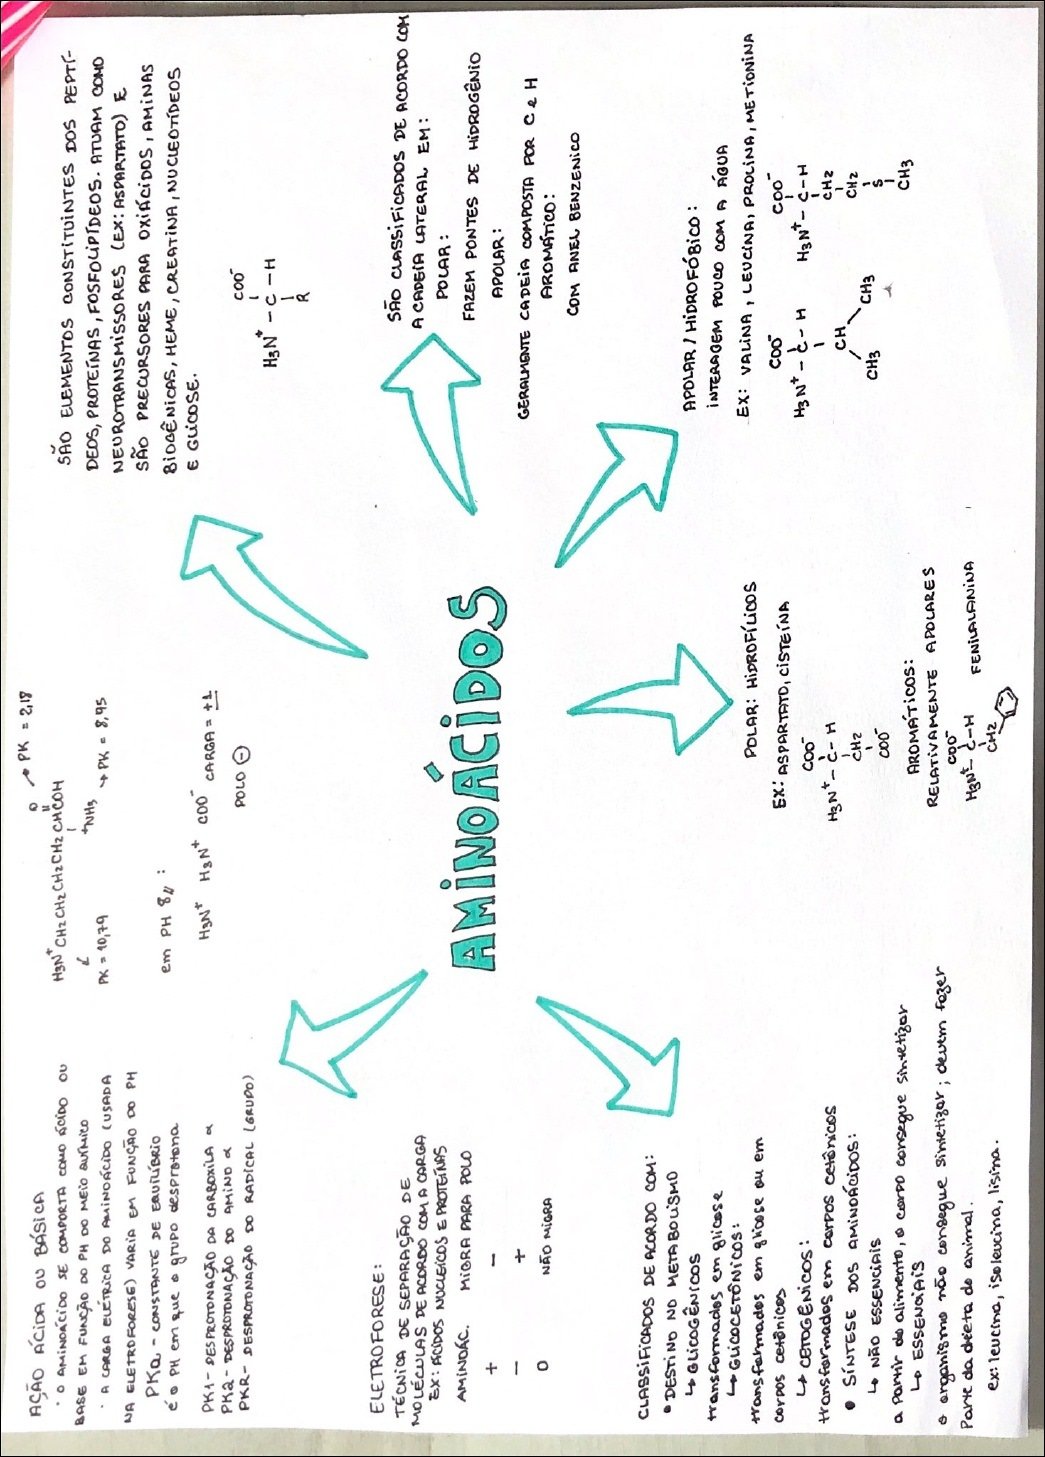 AÇÃO ÁCIDA OU BÁSICA
· O AMINOÁCIDO SE COMPORTA COMO ÁCIDO OU
BASE EM FUNÇÃO DO PH DO MEIO QUÍMICO
· A CARGA ELÉTRICA DO AMINOÁCIDO (USADA
NA ELETROFORESE) VARIA EM FUNÇÃO DO PH
PKa - CONSTANTE DE EQUILÍBRIO
é o PH em que o grupo desprotona
PK1 - DESPROTONAÇÃO DA CARBOXILA α
PK2 - DESPROTONAÇÃO DO AMINO α
PKR - DESPROTONAÇÃO DO RADICAL (GRUPO)
→ PK = 2,18
O
H3N+ CH2 CH2 CH2 CH2 CHCOH
+NH3 → PK = 8,95
PK = 10,79
em PH 8 :
H3N+ H3N+ COO- CARGA = +1
POLO (-)
SÃO ELEMENTOS CONSTITUINTES DOS PEPTÍ-
DEOS, PROTEÍNAS, FOSFOLIPÍDEOS. ATUAM COMO
NEUROTRANSMISSORES (EX: ASPARTATO) E
SÃO PRECURSORES PARA OXIÁCIDOS, AMINAS
BIOGÊNICAS, HEME, CREATINA, NUCLEOTÍDEOS
E GLICOSE.
COO-
H3N+ - C - H
R
AMINOÁCIDOS
SÃO CLASSIFICADOS DE ACORDO COM
A CADEIA LATERAL EM:
POLAR:
FAZEM PONTES DE HIDROGÊNIO
APOLAR:
GERALMENTE CADEIA COMPOSTA POR C e H
AROMÁTICO:
COM ANEL BENZENICO
ELETROFORESE:
TÉCNICA DE SEPARAÇÃO DE
MOLÉCULAS DE ACORDO COM A CARGA
EX: ÁCIDOS NUCLEICOS E PROTEÍNAS
AMINOÁC. MIGRA PARA POLO
+ -
- +
O NÃO MIGRA
CLASSIFICADOS DE ACORDO COM:
• DESTINO NO METABOLISMO
↳ GLICOGÊNICOS
transformados em glicose
↳ GLICOCETÔNICOS:
transformados em glicose ou em
corpos cetônicos
↳ CETOGÊNICOS:
transformados em corpos cetônicos
• SÍNTESE DOS AMINOÁCIDOS:
↳ NÃO ESSENCIAIS
a partir do alimento, o corpo consegue sintetizar
↳ ESSENCIAIS
o organismo não consegue sintetizar; devem fazer
parte da dieta do animal.
ex: leucina, isoleucina, lisina.
POLAR: HIDROFÍLICOS
EX: ASPARTATO, CISTEÍNA
COO-
H3N+ - C - H
CH2
COO-
AROMÁTICOS:
RELATIVAMENTE APOLARES
COO-
H3N+ - C - H FENILALANINA
CH2
APOLAR / HIDROFÓBICO:
INTERAGEM POUCO COM A ÁGUA
EX: VALINA, LEUCINA, PROLINA, METIONINA
COO-
H3N+ - C - H
CH
CH3 CH3
COO-
H3N+ - C - H
CH2
CH2
S
CH3